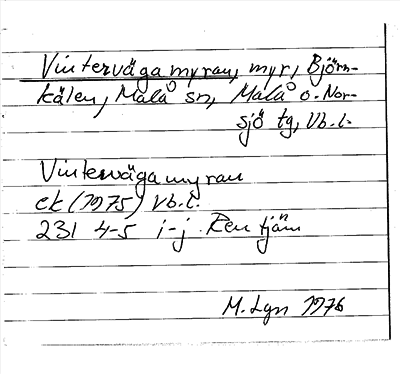 Vintervägamyran, myr, Björn-
kälen, Malå sn, Malå o. Nor-
sjö tg, Vb. l.
Vintervägamyran
ek (1975) Vb. l.
231 4-5 i-j Ren tjärn
M. Lgn 1976